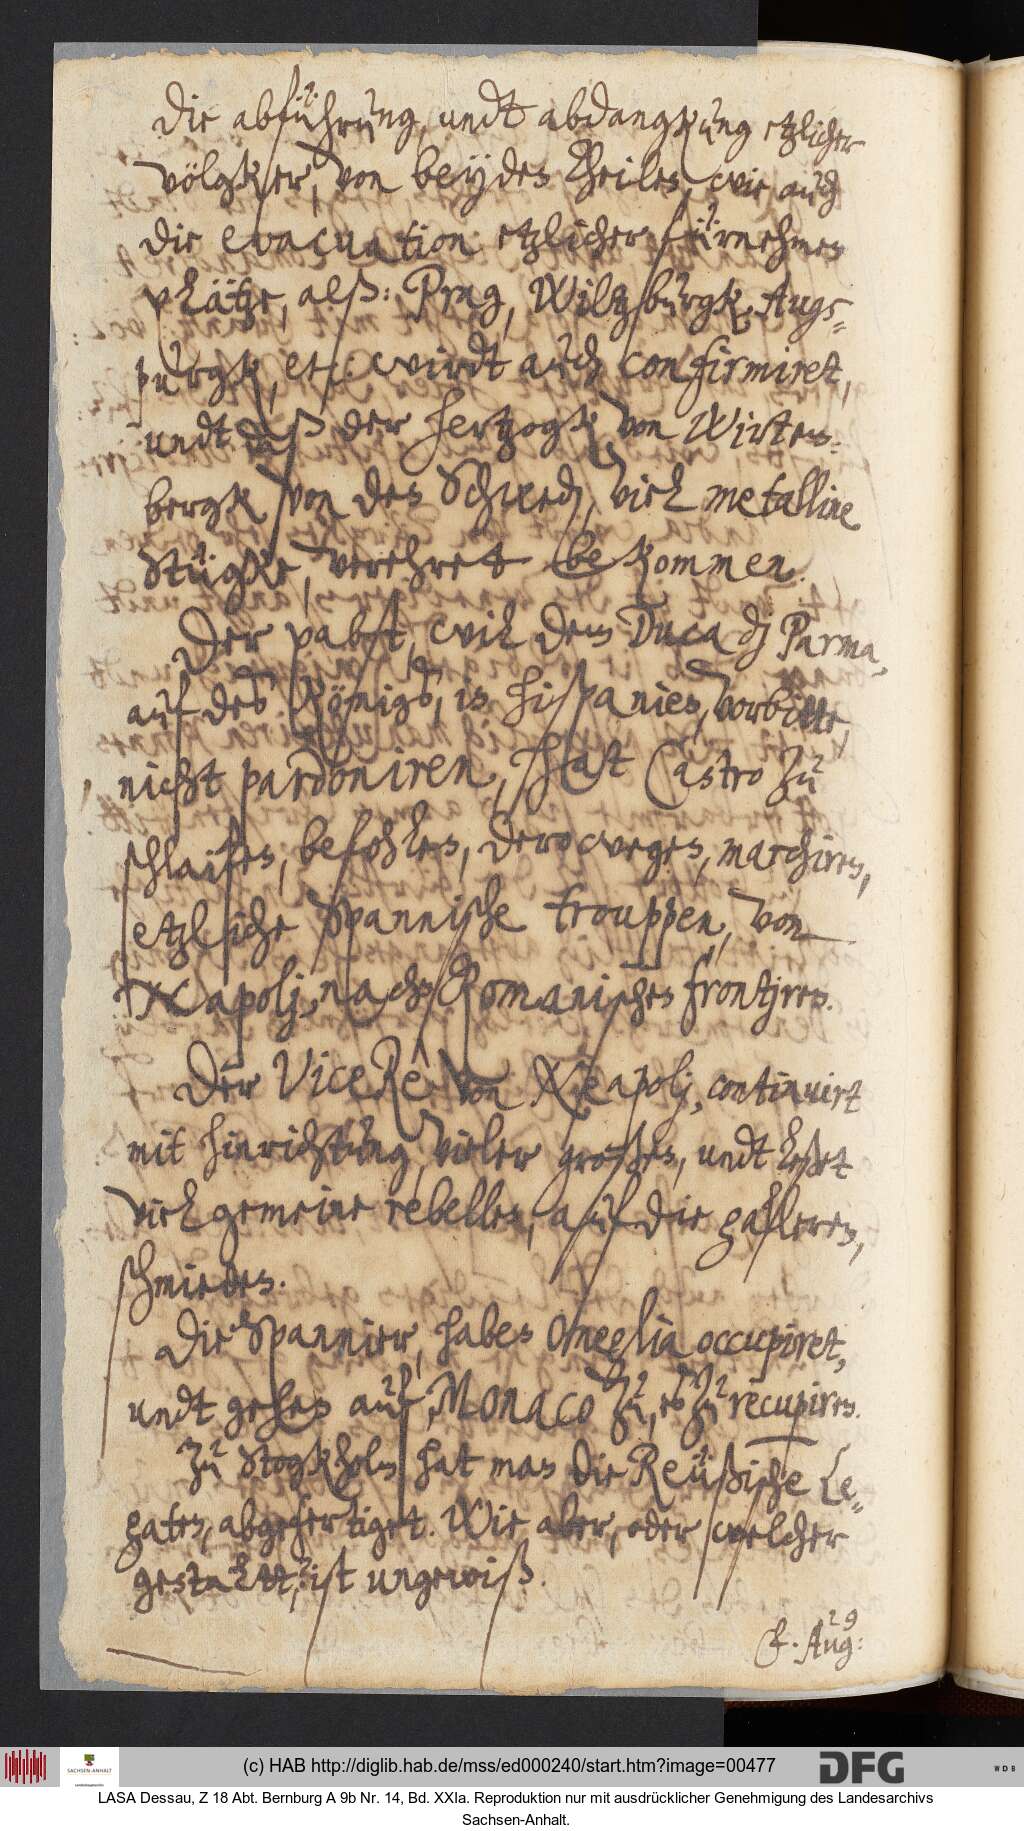 die abführung, undt abdangkung etzlicher
völgker, von beydes theiles, wie auch
die evacuation etzlicher fürnehmen
plätze, alß: Prag, Wiltzburgk, Augs=
purgk, etc: wirdt auch confirmiret,
undt daß der Hertzogk von Wirtem=
bergk von den Schwed, viel metalline
Stügke, verehret bekommen.
Der pabst, will dem Duca dj Parma,
auf des Königs, in Hispanien, vorbitte,
nicht pardoniren, hat Castro zu
schlaifen, befohlen, derowegen, marchiren,
etzliche Spannische trouppen, von
Napolj, nach Romanischen frontjren.
Der ViceRè von Neapolj, continuirt
mit hinrichtung, vieler großen, undt leßet
viel gemeine rebellen, auf die galleren,
schmieden.
Die Spannier, haben Oneglia occupiret,
undt gehen auf, Monaco zu, es zu recupiren.
Zu Stogkholm hat man die Reüßische Le=
gaten, abgefertiget. Wie aber, oder welcher
gestaltt, ist ungewiß.
29
Aug:
(c) HAB http://diglib.hab.de/mss/ed000240/start.htm?image=00477
SACHSEN-ANHALT
DFG
WDB
LASA Dessau, Z 18 Abt. Bernburg A 9b Nr. 14, Bd. XXIa. Reproduktion nur mit ausdrücklicher Genehmigung des Landesarchivs
Sachsen-Anhalt.